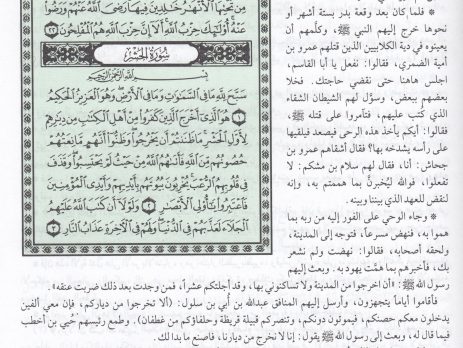 * فلما كان بعد وقعة بدر بستة أشهر أو
نحوها خرج إليهم النبي ﷺ، وكلمهم أن
يعينوه في دية الكلابيين الذين قتلهم عمرو بن
أمية الضمري، فقالوا: نفعل يا أبا القاسم،
اجلس هاهنا حتى نقضي حاجتك. فخلا
بعضهم ببعض، وسوَّل لهم الشيطان الشقاء
الذي كتب عليهم، فتآمروا على قتله ﷺ،
فقالوا: أيكم يأخذ هذه الرحى فيصعد فيلقيها
على رأسه يشدخه بها؟ فقال أشقاهم عمرو بن
جحاش: أنا. فقال لهم سلام بن مشكم: لا
تفعلوا، فوالله ليُخبرنَّ بما هممتم به، وإنه
لنقض للعهد الذي بيننا وبينه.
* وجاء الوحي على الفور إليه من ربه بما
هموا به، فنهض مسرعاً، فتوجه إلى المدينة،
ولحقه أصحابه، فقالوا: نهضت ولم نشعر
بك، فأخبرهم بما همَّت يهود به. وبعث إليهم
مِن تَحْتِهَا الْأَنْهَارُ خَالِدِينَ فِيهَا رَضِيَ اللَّهُ عَنْهُمْ وَرَضُوا
عَنْهُ أُولَٰئِكَ حِزْبُ اللَّهِ أَلَا إِنَّ حِزْبَ اللَّهِ هُمُ الْمُفْلِحُونَ ٢٢
سُورَةُ الْحَشْرِ
بِسْمِ اللَّهِ الرَّحْمَٰنِ الرَّحِيمِ
سَبَّحَ لِلَّهِ مَا فِي السَّمَاوَاتِ وَمَا فِي الْأَرْضِ وَهُوَ الْعَزِيزُ الْحَكِيمُ
١ هُوَ الَّذِي أَخْرَجَ الَّذِينَ كَفَرُوا مِنْ أَهْلِ الْكِتَابِ مِن دِيَارِهِمْ
لِأَوَّلِ الْحَشْرِ مَا ظَنَنتُمْ أَن يَخْرُجُوا وَظَنُّوا أَنَّهُم مَّانِعَتُهُمْ
حُصُونُهُم مِّنَ اللَّهِ فَأَتَاهُمُ اللَّهُ مِنْ حَيْثُ لَمْ يَحْتَسِبُوا وَقَذَفَ
فِي قُلُوبِهِمُ الرُّعْبَ يُخْرِبُونَ بُيُوتَهُم بِأَيْدِيهِمْ وَأَيْدِي الْمُؤْمِنِينَ
فَاعْتَبِرُوا يَا أُولِي الْأَبْصَارِ ٢ وَلَوْلَا أَن كَتَبَ اللَّهُ عَلَيْهِمُ
الْجَلَاءَ لَعَذَّبَهُمْ فِي الدُّنْيَا وَلَهُمْ فِي الْآخِرَةِ عَذَابُ النَّارِ ٣
رسول الله ﷺ: «أن اخرجوا من المدينة ولا تساكنوني بها، وقد أجلتكم عشراً، فمن وجدت بعد ذلك ضربت عنقه».
فأقاموا أياماً يتجهزون، وأرسل إليهم المنافق عبدالله بن أُبي بن سلول: (ألا تخرجوا من دياركم، فإن معي ألفين
يدخلون معكم حصنكم، فيموتون دونكم، وتنصركم قبيلة قريظة وحلفاؤكم من غطفان). وطمع رئيسهم حُيي بن أخطب
فيما قال له، وبعث إلى رسول الله ﷺ يقول: إنا لا نخرج من ديارنا، فاصنع ما بدا لك.